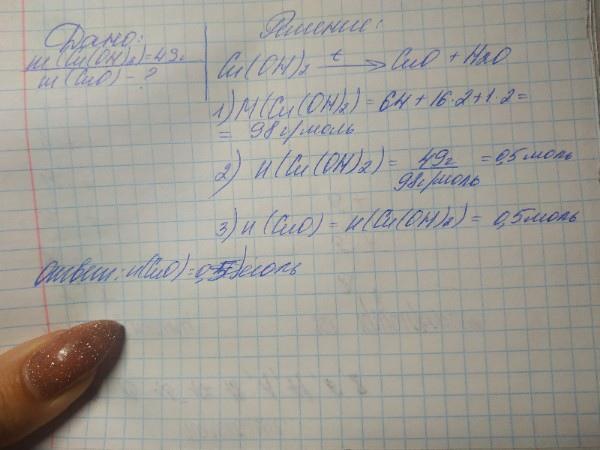 Дано:
m(Cu(OH)₂)=49г
m(CuO) - ?
Решение:
Cu(OH)₂ —t→ CuO + H₂O
1) M(Cu(OH)₂) = 64 + 16·2 + 1·2 =
= 98 г/моль
2) n(Cu(OH)₂) = 49г / 98г/моль = 0,5 моль
3) n(CuO) = n(Cu(OH)₂) = 0,5 моль
Ответ: n(CuO) = 0,5 моль